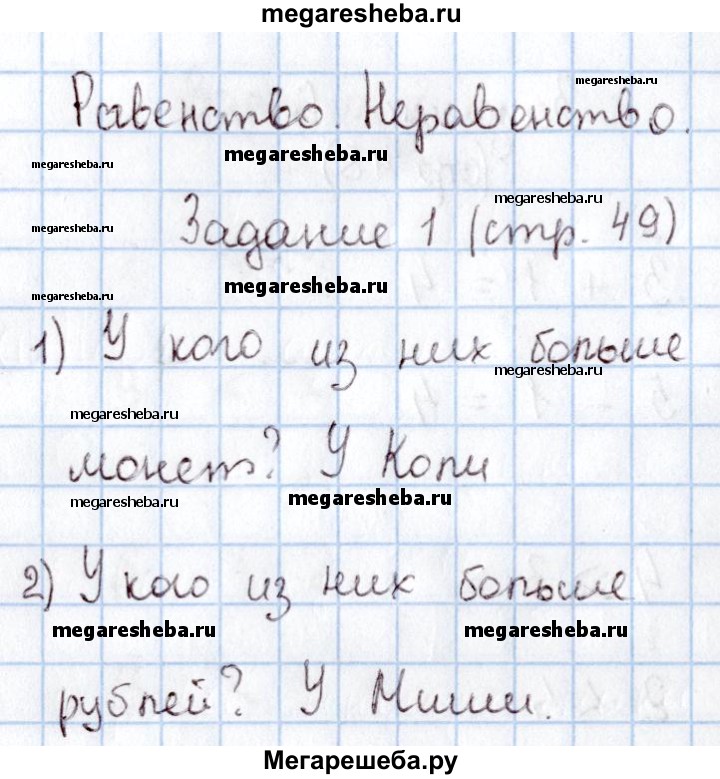 megaresheba.ru
megaresheba.ru
Равенство. Неравенство.
megaresheba.ru
megaresheba.ru
megaresheba.ru
megaresheba.ru
Задание 1 (стр. 49)
megaresheba.ru
megaresheba.ru
1) У кого из них больше
megaresheba.ru
megaresheba.ru
монет? У Коли
megaresheba.ru
megaresheba.ru
2) У кого из них больше
megaresheba.ru
megaresheba.ru
рублей? У Миши.
Мегарешеба.ру